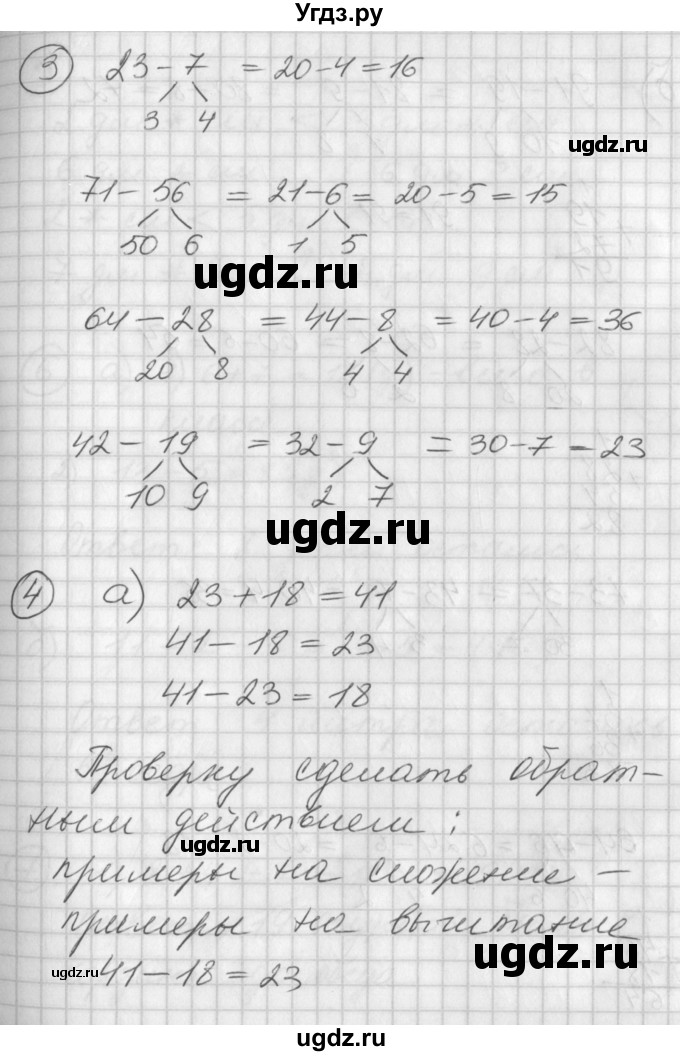 Угдз.ру
3 23 - 7 = 20 - 4 = 16
3 4
ugdz.ru
71 - 56 = 21 - 6 = 20 - 5 = 15
50 6 1 5
ugdz.ru
64 - 28 = 44 - 8 = 40 - 4 = 36
20 8 4 4
42 - 19 = 32 - 9 = 30 - 7 - 23
10 9 2 7
ugdz.ru
4 а) 23 + 18 = 41
41 - 18 = 23
41 - 23 = 18
Проверку сделать обрат-
ным действием:
ugdz.ru
примеры на сложение -
примеры на вычитание
ugdz.ru
ugdz.ru 41 - 18 = 23
ugdz.ru